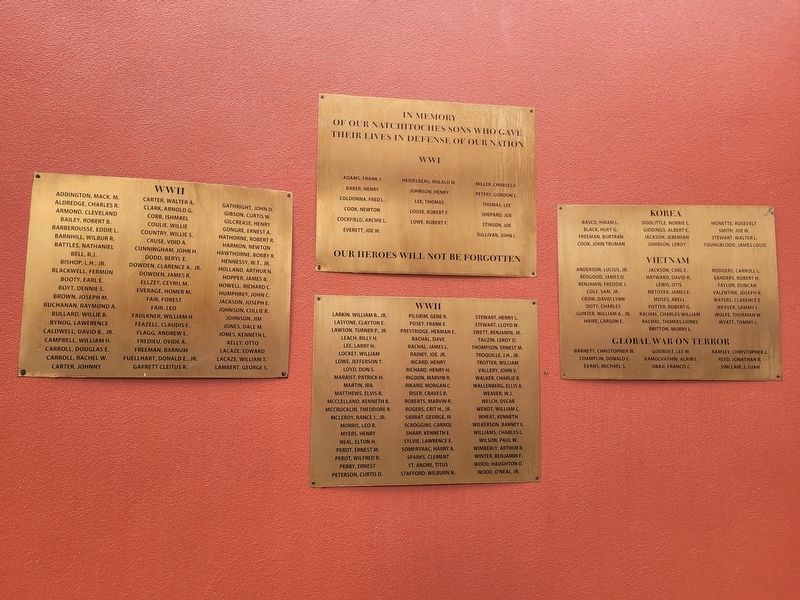 IN MEMORY
OF OUR NATCHITOCHES SONS WHO GAVE
THEIR LIVES IN DEFENSE OF OUR NATION
WWI
ADAMS, FRANK J.
BAKER, HENRY
COLDONNA, FRED L.
COOK, NEWTON
COCKFIELD, ARCHIE L.
EVERETT, JOE W.
HEIDELBERG, ROLALD W.
JOHNSON, HENRY
LEE, THOMAS
LOUSE, ROBERT F.
LOWE, ROBERT F.
MILLER, CHARLES F.
PETERS, GORDON L.
THOMAS, LEE
SHEPARD, JOE
STINSON, JOE
SULLIVAN, JOHN J.
OUR HEROES WILL NOT BE FORGOTTEN
WWII
ADDINGTON, MACK. M.
ALDREDGE, CHARLES R.
ARMOND, CLEVELAND
BAILEY, ROBERT B.
BARBEROUSSE, EDDIE L.
BARNHILL, WILBUR R.
BATTLES, NATHANIEL
BELL, R.J.
BISHOP, L.H., JR.
BLACKWELL, FERMON
BOOTY, EARL E.
BOYT, DENNIE S.
BROWN, JOSEPH M.
BUCHANAN, RAYMOND A.
BULLARD, WILLIE B.
BYNOG, LAWERENCE
CALDWELL, DAVID B., JR.
CAMPBELL, WILLIAM H.
CARROLL, DOUGLAS E.
CARROLL, RACHEL W.
CARTER, JOHNNY
CARTER, WALTER A.
CLARK, ARNOLD G.
COBB, ISHMAEL
COULIE, WILLIE
COUNTRY, WILLIE S.
CRUSE, VOID A.
CUNNINGHAM, JOHN H.
DODD, BERYL E.
DOWDEN, CLARENCE A., JR.
DOWDEN, JAMES R.
ELLZEY, CEYRIL M.
EVERAGE, HOMER M.
FAIR, FOREST
FAIR, LEO
FAULKNER, WILLIAM H.
FEAZELL, CLAUDIS E.
FLAGG, ANDREW E.
FREDIEU, OVIDE A.
FREEMAN, BARNUM
FUELLHART, DONALD E., JR.
GARRETT CLEITUS R.
GATHRIGHT, JOHN D.
GIBSON, CURTIS W.
GILCREASE, HENRY
GONGRE, ERNEST A.
HATHORNE, ROBERT R.
HARMON, NEWTON
HAWTHORNE, BOBBY R.
HENNESSY, W.T., JR.
HOLLAND, ARTHUR N.
HOPPER, JAMES B.
HOWELL, RICHARD C.
HUMPHREY, JOHN C.
JACKSON, JOSEPH E.
JOHNSON, CULLIE B.
JOHNSON, JIM
JONES, DALE M.
JONES, KENNETH L.
KELLY, OTTO
LACAZE, EDWARD
LACAZE, WILLIAM T.
LAMBERT, GEORGE S.
WWII
LARKIN, WILLIAM B., JR.
LASYONE, CLAYTON E.
LAWSON, TURNER F., JR.
LEACH, BILLY H.
LEE, LARRY H.
LOCKET, WILLIAM
LOWE, JEFFERSON T.
LOYD, DON S.
MARAIST, PATRICK H.
MARTIN, IRA.
MATTHEWS, ELVIS B.
MCCLELLAND, KENNETH B.
MCCROCKLIN, THEODORE R.
MCLEROY, RANCE J., JR.
MORRIS, LEO R.
MYERS, HENRY
NEAL, ELTON H.
PEROT, ERNEST M.
PEROT, WILFRED R.
PERRY, ERNEST
PETERSON, CURTIS D.
PILGRIM, GENE R.
POSEY, FRANK E.
PRESTRIDGE, HERMAN E.
RACHAL, DAVE
RACHAL, JAMES L.
RAINEY, JOE, JR.
RICARD, HENRY
RICHARD, HENRY H.
RIGDON, MARVIN R.
RIKARD, MORGAN C.
RISER, CRAVES B.
ROBERTS, MARVIN R.
ROGERS, CRIT H., JR.
SARRAT, GEORGE, III
SCROGGINS, CARROL
SHARP, KENNETH E.
SYLVIE, LAWRENCE E.
SOMPAYRAC, HARRY A.
SPARKS, CLEMENT
ST. ANDRE, TITUS
STAFFORD, WILBURN N.
STEWART, HENRY L.
STEWART, LLOYD W.
SWETT, BENJAMIN, JR.
TAUZIN, LEROY O.
THOMPSON, ERNEST M.
TROQUILLE, J.H., JR.
TROTTER, WILLIAM
VALLERY, JOHN V.
WALKER, CHARLIE R.
WALLENBERG, ELLIS A.
WEAVER, W.J.
WELCH, OSCAR
WENDT, WILLIAM C.
WHEAT, KENNETH
WILKERSON, BARNEY E.
WILLIAMS, CHARLES L.
WILSON, PAUL W.
WIMBERLY, ARTHUR R.
WINTER, BENJAMIN F.
WOOD, HAUGHTON O.
WOOD, O'NEAL, JR.
KOREA
BASCO, HIRAM L.
BLACK, HUEY G.
FREEMAN, BURTRAN
COOK, JOHN TRUMAN
DOOLITTLE, NORRIE C.
GIDDINGS, ALBERT E.
JACKSON, JEREMIAH
JOHNSON, LEROY
MONETTE, ROSEVELT
SMITH, JOE W.
STEWART, WALTER L.
YOUNGBLOOD, JAMES LOUIS
VIETNAM
ANDERSON, LUCIUS, JR.
BEDGOOD, JAMES D.
BENJAMIN, FREDDIE J.
COLE, SAM, JR.
CROW, DAVID LYNN
DOTY, CHARLES
GUNTER, WILLIAM A., JR.
HAIRE, CARSON E.
JACKSON, CARL E.
HAYWARD, DAVID R.
LEWIS, OTIS
METOYER, JAMES E.
MOSES, ABELL
POTTER, ROBERT G.
RACHAL, CHARLES WILLIAM
RACHAL, THOMAS LIONEL
BRITTON, MURRY L.
RODGERS, CARROLL L.
SANDERS, ROBERT H.
TAYLOR, DUNCAN
VALENTINE, JOSEPH R.
WATERS, CLARENCE E.
WEAVER, LAMMY L.
WOLFE, THURMAN W.
WYATT, TOMMY L.
GLOBAL WAR ON TERROR
BARNETT, CHRISTOPHER W.
CHAMPLIN, DONALD E.
EVANS, MICHAEL S
GODBOLT, LEE M.
KAMOLVATHIN, ALAIN L.
OBAJI, FRANCIS C.
RAMSEY, CHRISTOPHER J.
REED, JONATHAN R.
SINCLAIR, J. ISIAH